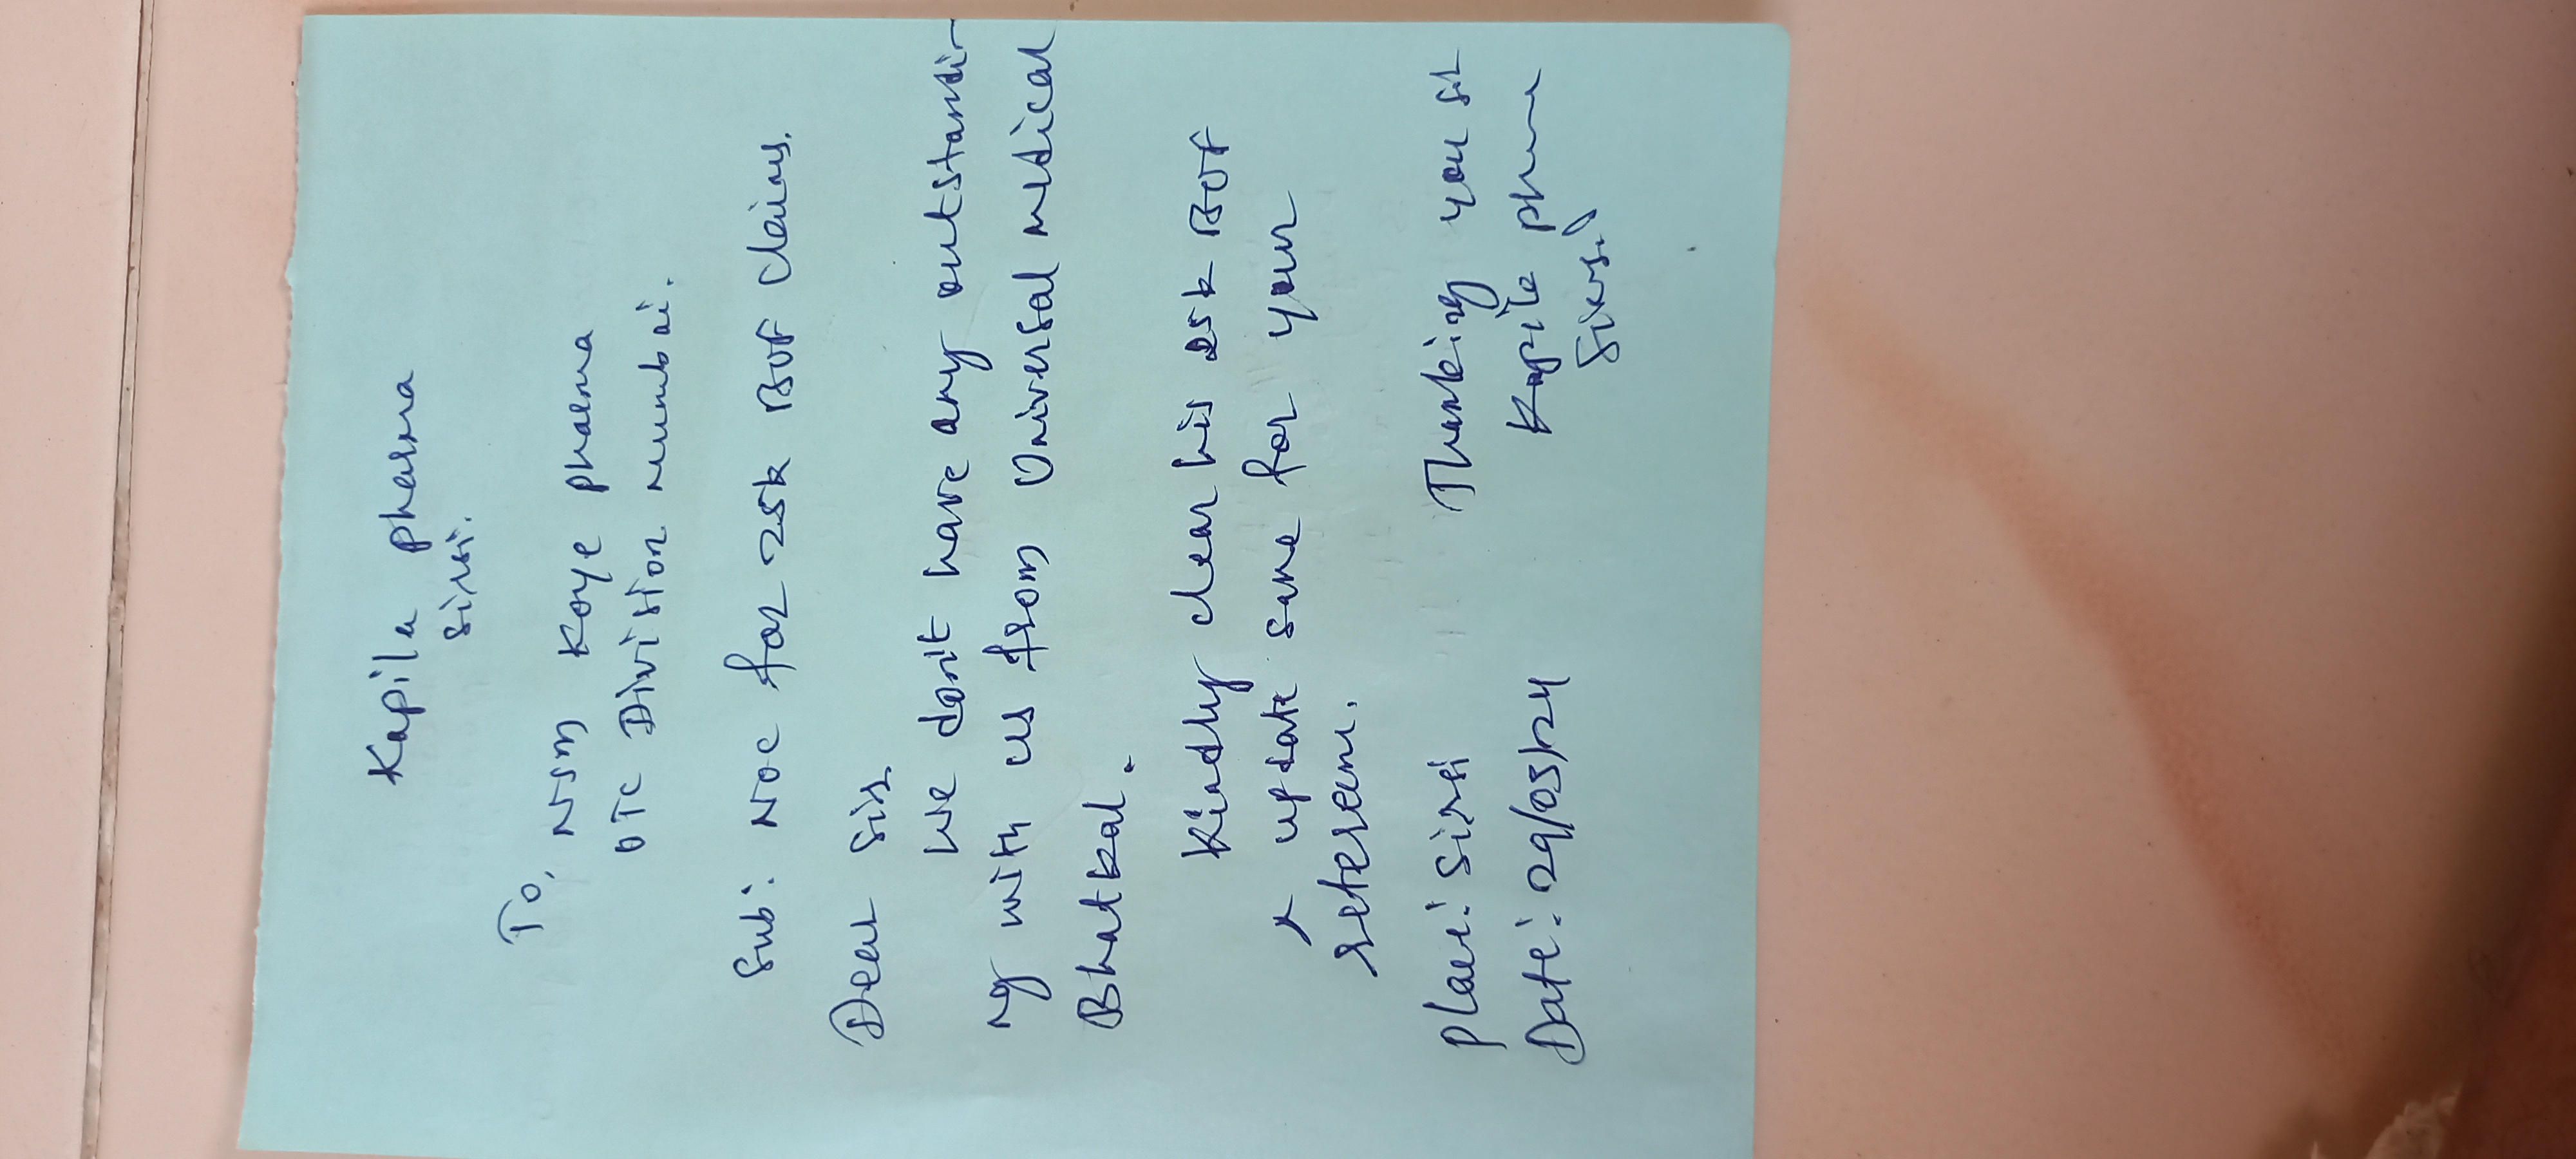 Kapila pharma
Sirsi.
To,
NSM Koye pharma
OTC Division mumbai.
Sub: NOC for 25k BOF claims.
Dear Sir
We dont have any outstandi-
ng with us from Universal medical
Bhatkal.
Kindly clear his 25k BOF
& update same for your
Place: Sirsi Thanking you sir
Date: 29/05/24 Kapila